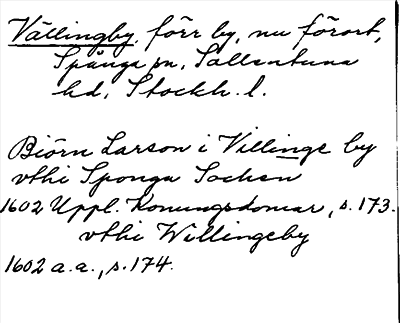 Vällingby, förr by, nu förort,
Spånga sn, Sollentuna
hd, Stockh. l.
Biörn Larson i Villinge by
vthi Sponga Sochen
1602 Uppl. Konungsdomar, s. 173.
vthi Willingeby
1602 a.a., s. 174.